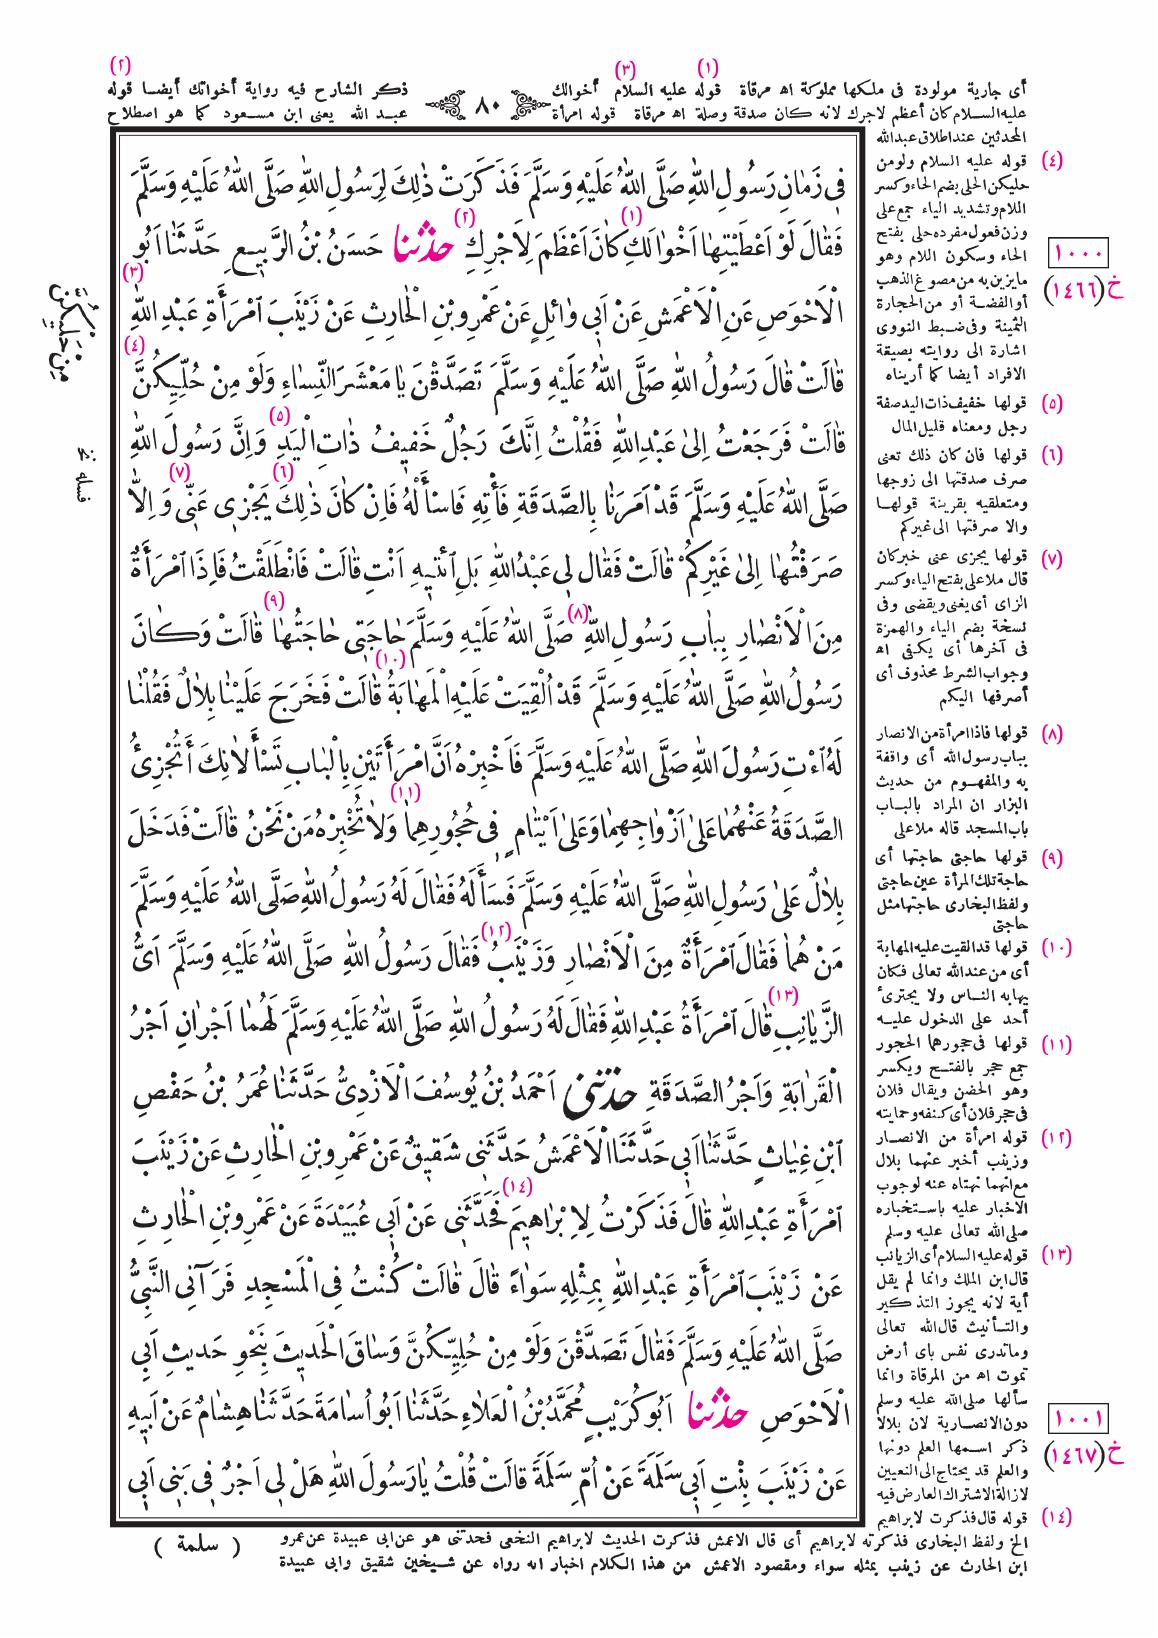 (١) (٣) (٢)
أى جارية مولودة فى ملكها مملوكة اه مرقاة قوله عليه السلام أخوالك
٨٠
ذكر الشارح فيه رواية أخواتك أيضا قوله
عليه السلام كان أعظم لاجرك لانه كان صدقة وصلة اه مرقاة قوله امرأة
عبد الله يعنى ابن مسعود كما هو اصطلاح
فِى زَمَانِ رَسُولِ اللهِ صَلَّى اللهُ عَلَيْهِ وَسَلَّمَ فَذَكَرَتْ ذٰلِكَ لِرَسُولِ اللهِ صَلَّى اللهُ عَلَيْهِ وَسَلَّمَ
فَقَالَ لَوْ اَعْطَيْتِهَا اَخْوَالَكِ (١) كَانَ اَعْظَمَ لِاَجْرِكِ (٢) حدثنا حَسَنُ بْنُ الرَّبِيعِ حَدَّثَنَا اَبُو
الْاَحْوَصِ عَنِ الْاَعْمَشِ عَنْ اَبِى وَائِلٍ عَنْ عَمْرِو بْنِ الْحَارِثِ عَنْ زَيْنَبَ امْرَأَةِ عَبْدِ اللهِ (٣)
قَالَتْ قَالَ رَسُولُ اللهِ صَلَّى اللهُ عَلَيْهِ وَسَلَّمَ تَصَدَّقْنَ يَا مَعْشَرَ النِّسَاءِ وَلَوْ مِنْ حُلِيِّكُنَّ (٤)
قَالَتْ فَرَجَعْتُ اِلٰى عَبْدِ اللهِ فَقُلْتُ اِنَّكَ رَجُلٌ خَفِيفُ ذَاتِ الْيَدِ (٥) وَاِنَّ رَسُولَ اللهِ
صَلَّى اللهُ عَلَيْهِ وَسَلَّمَ قَدْ اَمَرَنَا بِالصَّدَقَةِ فَأْتِهِ فَاسْأَلْهُ فَاِنْ كَانَ ذٰلِكَ (٦) يَجْزِى عَنِّى (٧) وَاِلاَّ
صَرَفْتُهَا اِلٰى غَيْرِكُمْ قَالَتْ فَقَالَ لِى عَبْدُ اللهِ بَلِ ائْتِيهِ اَنْتِ قَالَتْ فَانْطَلَقْتُ فَاِذَا امْرَأَةٌ
مِنَ الْاَنْصَارِ بِبَابِ رَسُولِ اللهِ (٨) صَلَّى اللهُ عَلَيْهِ وَسَلَّمَ حَاجَتِى حَاجَتُهَا (٩) قَالَتْ وَكَانَ
رَسُولُ اللهِ صَلَّى اللهُ عَلَيْهِ وَسَلَّمَ قَدْ اُلْقِيَتْ عَلَيْهِ الْمَهَابَةُ (١٠) قَالَتْ فَخَرَجَ عَلَيْنَا بِلَالٌ فَقُلْنَا
لَهُ ائْتِ رَسُولَ اللهِ صَلَّى اللهُ عَلَيْهِ وَسَلَّمَ فَاَخْبِرْهُ اَنَّ امْرَأَتَيْنِ بِالْبَابِ تَسْأَلَانِكَ اَتُجْزِئُ
الصَّدَقَةُ عَنْهُمَا عَلٰى اَزْوَاجِهِمَا وَعَلٰى اَيْتَامٍ فِى حُجُورِهِمَا (١١) وَلَا تُخْبِرْهُ مَنْ نَحْنُ قَالَتْ فَدَخَلَ
بِلَالٌ عَلٰى رَسُولِ اللهِ صَلَّى اللهُ عَلَيْهِ وَسَلَّمَ فَسَأَلَهُ فَقَالَ لَهُ رَسُولُ اللهِ صَلَّى اللهُ عَلَيْهِ وَسَلَّمَ
مَنْ هُمَا فَقَالَ امْرَأَةٌ مِنَ الْاَنْصَارِ وَزَيْنَبُ (١٢) فَقَالَ رَسُولُ اللهِ صَلَّى اللهُ عَلَيْهِ وَسَلَّمَ اَىُّ
الزَّيَانِبِ (١٣) قَالَ امْرَأَةُ عَبْدِ اللهِ فَقَالَ لَهُ رَسُولُ اللهِ صَلَّى اللهُ عَلَيْهِ وَسَلَّمَ لَهُمَا اَجْرَانِ اَجْرُ
الْقَرَابَةِ وَاَجْرُ الصَّدَقَةِ حدثنى اَحْمَدُ بْنُ يُوسُفَ الْاَزْدِىُّ حَدَّثَنَا عُمَرُ بْنُ حَفْصِ
ابْنِ غِيَاثٍ حَدَّثَنَا اَبِى حَدَّثَنَا الْاَعْمَشُ حَدَّثَنِى شَقِيقٌ عَنْ عَمْرِو بْنِ الْحَارِثِ عَنْ زَيْنَبَ
امْرَأَةِ عَبْدِ اللهِ قَالَ فَذَكَرْتُ لِاِبْرَاهِيمَ (١٤) فَحَدَّثَنِى عَنْ اَبِى عُبَيْدَةَ عَنْ عَمْرِو بْنِ الْحَارِثِ
عَنْ زَيْنَبَ امْرَأَةِ عَبْدِ اللهِ بِمِثْلِهِ سَوَاءً قَالَ قَالَتْ كُنْتُ فِى الْمَسْجِدِ فَرَآنِى النَّبِىُّ
صَلَّى اللهُ عَلَيْهِ وَسَلَّمَ فَقَالَ تَصَدَّقْنَ وَلَوْ مِنْ حُلِيِّكُنَّ وَسَاقَ الْحَدِيثَ بِنَحْوِ حَدِيثِ اَبِى
الْاَحْوَصِ حدثنا اَبُو كُرَيْبٍ مُحَمَّدُ بْنُ الْعَلَاءِ حَدَّثَنَا اَبُو اُسَامَةَ حَدَّثَنَا هِشَامٌ عَنْ اَبِيهِ
عَنْ زَيْنَبَ بِنْتِ اَبِى سَلَمَةَ عَنْ اُمِّ سَلَمَةَ قَالَتْ قُلْتُ يَا رَسُولَ اللهِ هَلْ لِى اَجْرٌ فِى بَنِى اَبِى
( سلمة )
المحدثين عند اطلاق عبد الله
(٤) قوله عليه السلام ولو من
حليكن الحلى بضم الحاء وكسر
اللام وتشديد الياء جمع على
وزن فعول مفرده حلى بفتح
الحاء وسكون اللام وهو
ما يزين به من مصوغ الذهب
أو الفضة أو من الحجارة
الثمينة وفى ضبط النووى
اشارة الى روايته بصيغة
الافراد أيضا كما أريناه
(٥) قولها خفيف ذات اليد صفة
رجل ومعناه قليل المال
(٦) قولها فان كان ذلك تعنى
صرف صدقتها الى زوجها
ومتعلقيه بقرينة قولها
والا صرفتها الى غيركم
(٧) قولها يجزى عنى خبر كان
قال ملا على بفتح الياء وكسر
الزاى أى يغنى ويقضى وفى
نسخة بضم الياء والهمزة
فى آخرها أى يكفى اه
وجواب الشرط محذوف أى
أصرفها اليكم
(٨) قولها فاذا امرأة من الانصار
بباب رسول الله أى واقفة
به والمفهوم من حديث
البزار ان المراد بالباب
باب المسجد قاله ملا على
(٩) قولها حاجتى حاجتها أى
حاجة تلك المرأة عين حاجتى
ولفظ البخارى حاجتها مثل
حاجتى
(١٠) قولها قد القيت عليه المهابة
أى من عند الله تعالى فكان
يهابه الناس ولا يجترىء
أحد على الدخول عليه
(١١) قولها فى حجورهما الحجور
جمع حجر بالفتح ويكسر
وهو الحضن ويقال فلان
فى حجر فلان أى كنفه وحمايته
(١٢) قوله امرأة من الانصار
وزينب أخبر عنهما بلال
مع انهما نهتاه عنه لوجوب
الاخبار عليه باستخباره
صلى الله تعالى عليه وسلم
(١٣) قوله عليه السلام أى الزيانب
قال ابن الملك وانما لم يقل
أية لانه يجوز التذكير
والتأنيث قال الله تعالى
وما تدرى نفس باى أرض
تموت اه من المرقاة وانما
سألها صلى الله عليه وسلم
دون الانصارية لان بلالا
ذكر اسمها العلم دونها
والعلم قد يحتاج الى التعيين
لازالة الاشتراك العارض فيه
(١٤) قوله قال فذكرت لابراهيم
الخ ولفظ البخارى فذكرته لابراهيم أى قال الاعمش فذكرت الحديث لابراهيم النخعى فحدثنى هو عن ابى عبيدة عن عمرو
ابن الحارث عن زينب بمثله سواء ومقصود الاعمش من هذا الكلام اخبار انه رواه عن شيخين شقيق وابى عبيدة
١٠٠٠
خ (١٤٦٦)
١٠٠١
خ (١٤٦٧)
مِنْ حَلْيِكُنَّ
فسله نخ